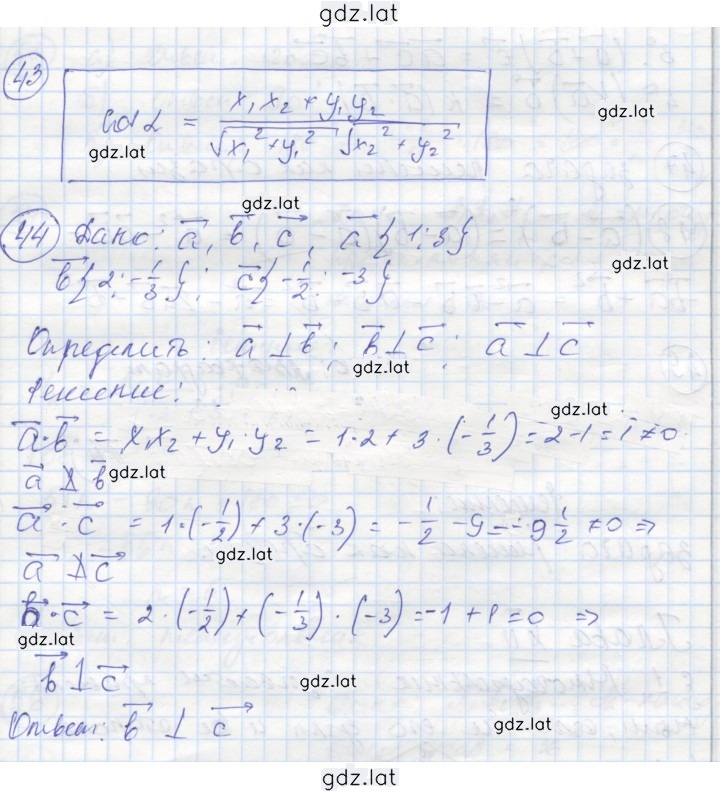 gdz.lat
43
cos α = (x₁x₂ + y₁y₂) / (√x₁² + y₁² √x₂² + y₂²)
gdz.lat
gdz.lat
gdz.lat
44 Дано: a⃗, b⃗, c⃗, a⃗{1; 3}
b⃗{2; -1/3}; c⃗{-1/2; -3}
gdz.lat
Определить: a⃗ ⊥ b⃗; b⃗ ⊥ c⃗; a⃗ ⊥ c⃗
gdz.lat
Решение:
gdz.lat
a⃗·b⃗ = x₁x₂ + y₁·y₂ = 1·2 + 3·(-1/3) = 2-1 = 1 ≠ 0
a⃗ ⊥̸ b⃗
gdz.lat
a⃗·c⃗ = 1·(-1/2) + 3·(-3) = -1/2 - 9 = -9 1/2 ≠ 0 ⇒
gdz.lat
a⃗ ⊥̸ c⃗
b⃗·c⃗ = 2·(-1/2) + (-1/3)·(-3) = -1 + 1 = 0 ⇒
gdz.lat
b⃗ ⊥ c⃗
gdz.lat
Ответ: b⃗ ⊥ c⃗
gdz.lat
gdz.lat